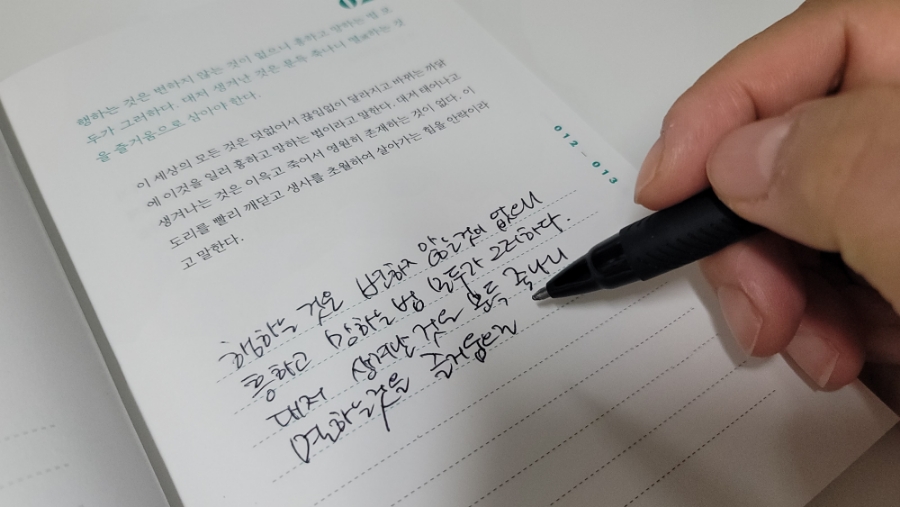 행하는 것은 변하지 않는 것이 없으니 흥하고 망하는 법 모
두가 그러하다. 대저 생겨난 것은 문득 죽나니 멸하는 것
을 즐거움으로 살아야 한다.
이 세상의 모든 것은 덧없어서 끊임없이 달라지고 바뀌는 까닭
에 이것을 일러 흥하고 망하는 법이라고 말한다. 대저 태어나고
생겨나는 것은 이윽고 죽어서 영원히 존재하는 것이 없다. 이
도리를 빨리 깨닫고 생사를 초월하여 살아가는 힘을 안락이라
고 말한다.
012 – 013
행하는 것은 변하지 않는것이 없으니
흥하고 망하는 법 모두가 그러하다.
대저 생겨난 것은 문득 죽나니
멸하는것을 즐거움으로